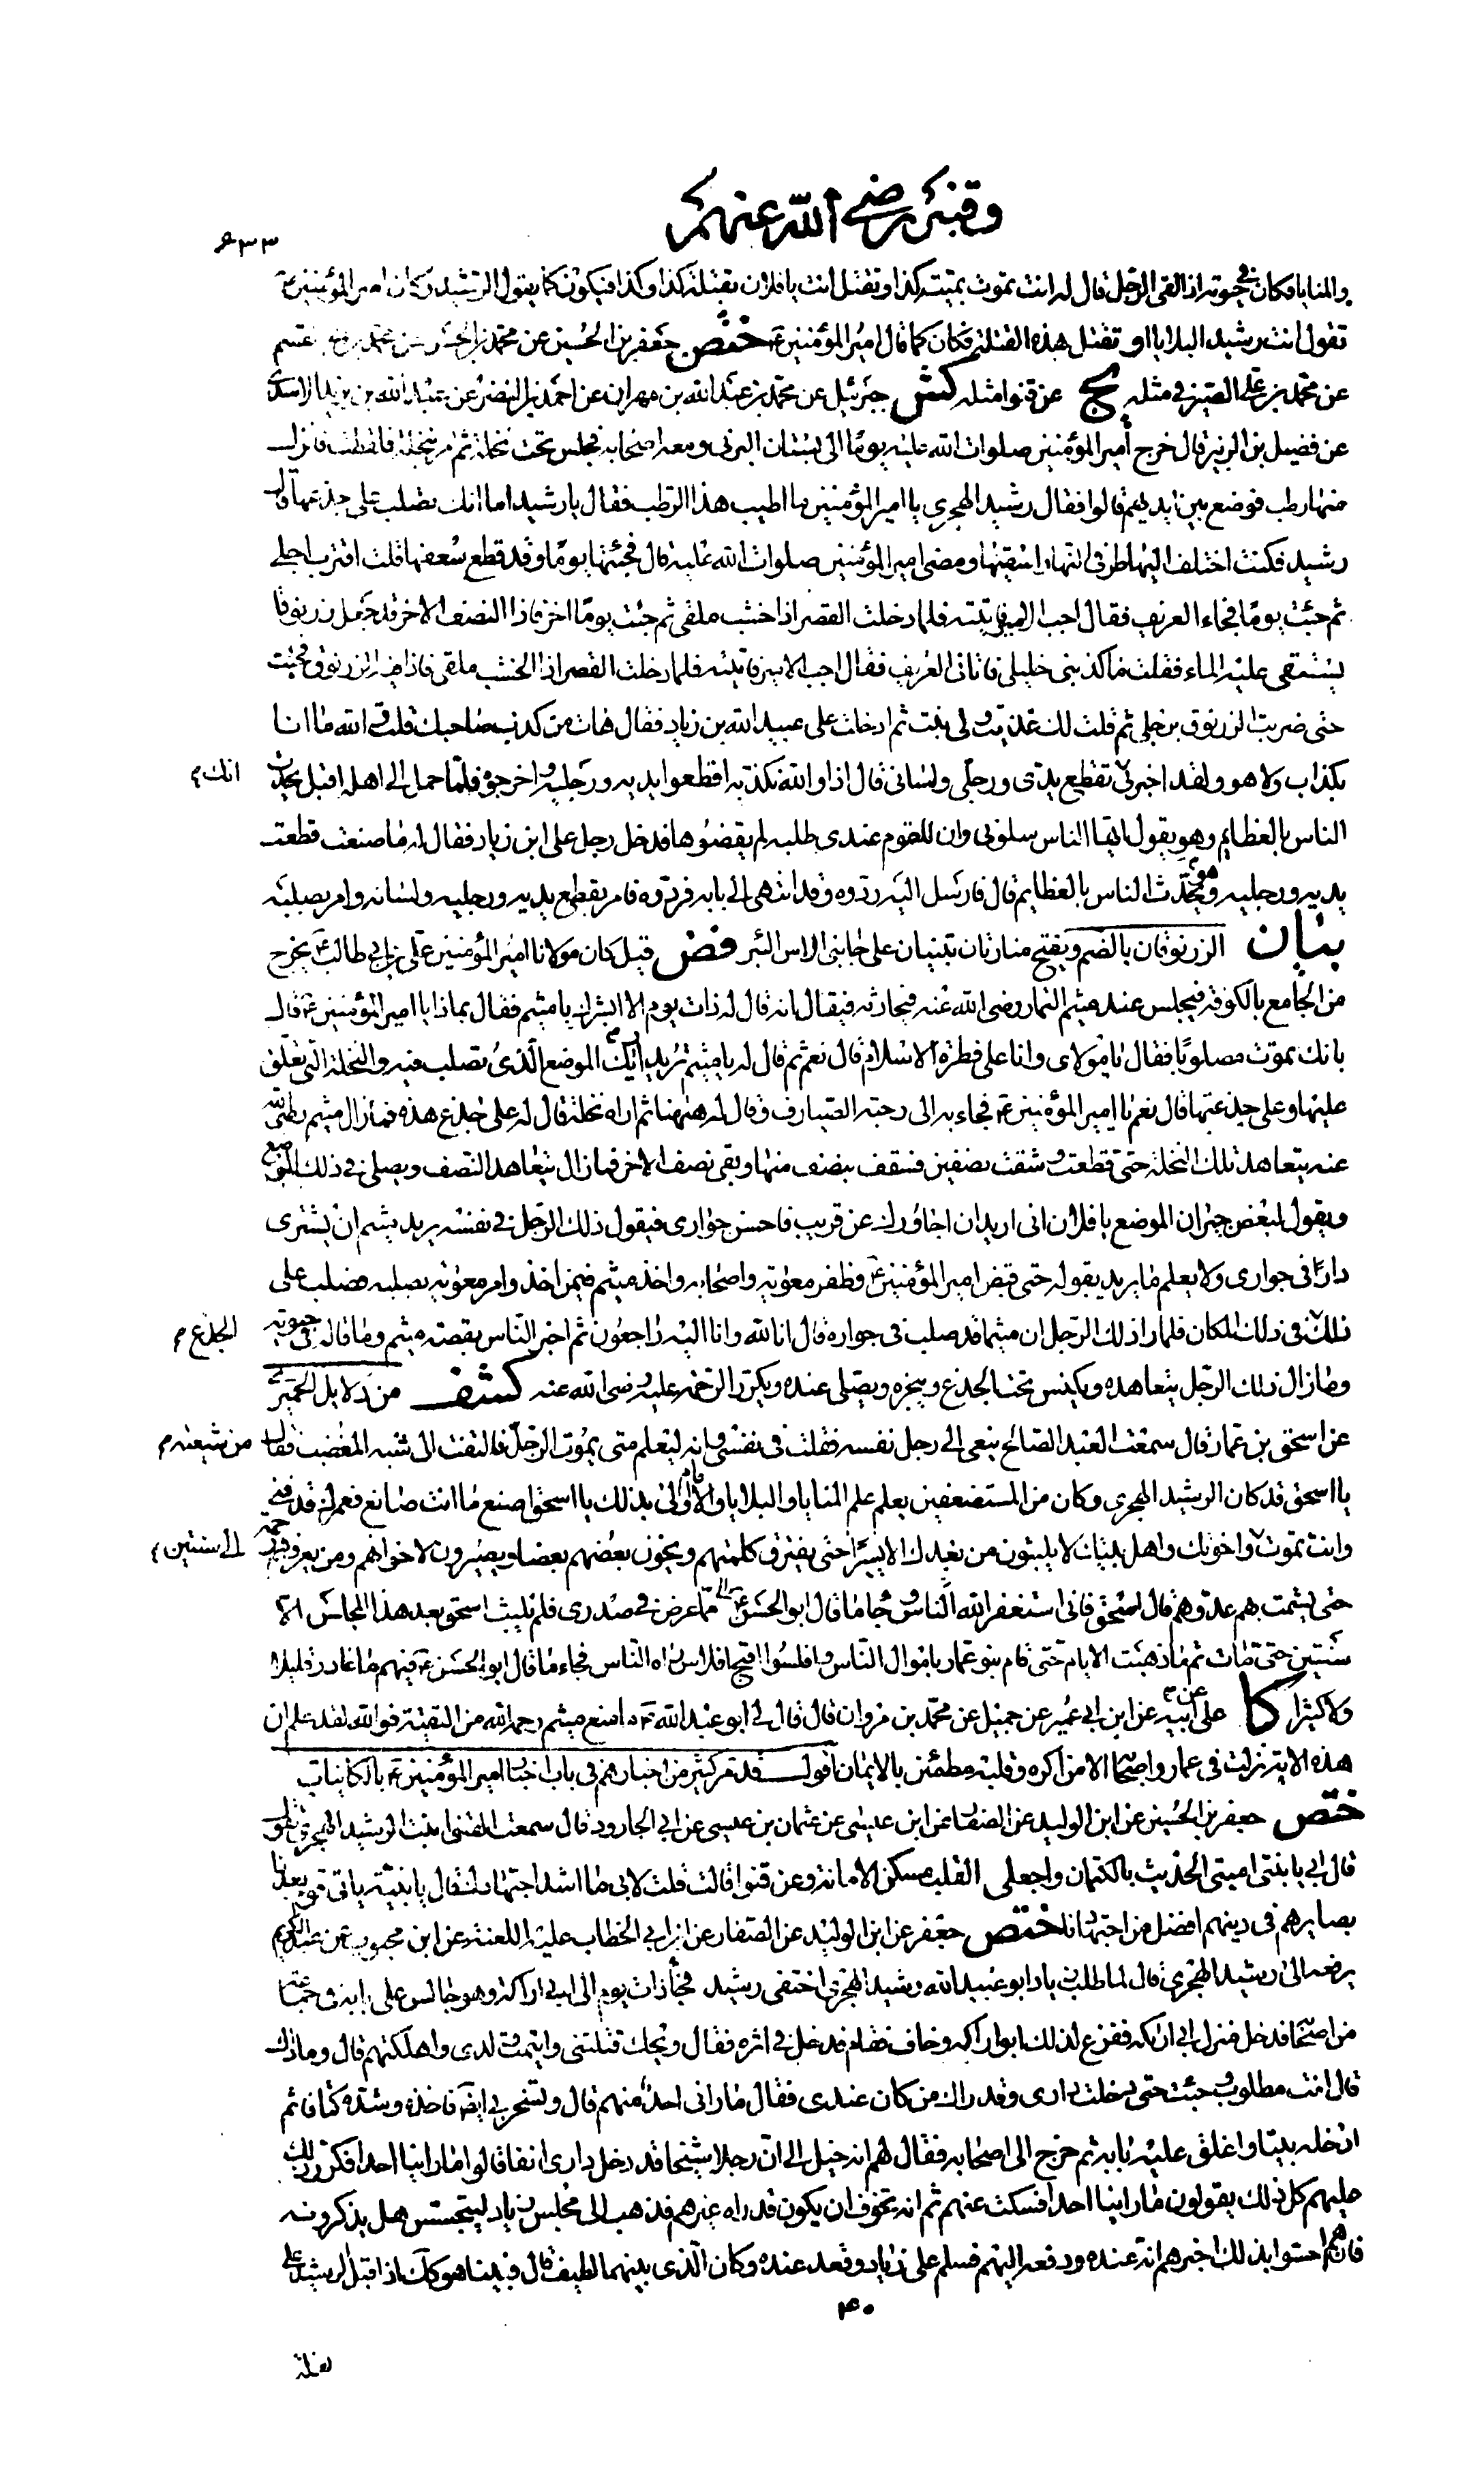 وقنبر رضي الله عنهم
۶۳۳
والمنايا فكان في حيوته اذا لقى الرجل قال له انت تموت بميتة كذا وتقتل انت يا فلان بقتلة كذا وكذا فيكون كما يقول الرشيد وكان امير المؤمنين ع
يقول انت رشيد البلايا او تقتل هذه القتلة فكان كما قال امير المؤمنين ع ختص جعفر بن الحسين عن محمد بن الحسن عن محمد بن
عن محمد بن علي الصيرفي مثله يج عن قنوا مثله كش جبرئيل عن محمد بن عبد الله بن مهران عن احمد بن النضر عن عبد الله بن يزيد الاسدي
عن فضيل بن الزبير قال خرج أمير المؤمنين صلوات الله عليه يوما الى بستان البرني ومعه اصحابه فجلس تحت نخلة ثم امر بنخلة فلقطت فانزل
منها رطب فوضع بين ايديهم قالوا فقال رشيد الهجري يا امير المؤمنين ما اطيب هذا الرطب فقال يا رشيد اما انك تصلب على جذعها قال
رشيد فكنت اختلف اليها طرفي النهار اسقيها ومضى امير المؤمنين صلوات الله عليه قال فجئتها يوما وقد قطع سعفها قلت اقترب اجلي
ثم جئت يوما فجاء العريف فقال اجب الامير فاتيته فلما دخلت القصر اذا خشب ملقى ثم جئت يوما اخر فاذا النصف الاخر قد جعل زرنوقا
يستقى عليه الماء فقلت ما كذبني خليلي فاتاني العريف فقال اجب الامير فاتيته فلما دخلت القصر اذا الخشب ملقى فاذا فيه الزرنوق فجئت
حتى ضربت الزرنوق برجلي ثم قلت لك غذيت ولي نبت ثم ادخلت على عبيد الله بن زياد فقال هات من كذب صاحبك قلت والله ما انا
بكذاب ولا هو ولقد اخبرني تقطع يدي ورجلي ولساني قال اذا والله نكذبه اقطعوا يديه ورجليه واخرجوه فلما حمل الى اهله اقبل يحدث
انك م
الناس بالعظايم وهو يقول ايها الناس سلوني وان للقوم عندي طلبة لم يقضوها فدخل رجل على ابن زياد فقال له ما صنعت قطعت
يديه ورجليه وهو يحدث الناس بالعظايم قال فارسل اليه ردوه وقد انتهى الى بابه فردوه فامر بقطع يديه ورجليه ولسانه وامر بصلبه
بيان الزرنوقان بالضم ويفتح منارتان تبنيان على جانبي الراس البئر فض قيل كان مولانا امير المؤمنين علي بن ابي طالب ع يخرج
من الجامع بالكوفة فيجلس عند ميثم التمار رضى الله عنه فيحادثه فيقال انه قال له ذات يوم الا ابشرك يا ميثم فقال بماذا يا امير المؤمنين ع قال
بانك تموت مصلوبا فقال يا مولاى وانا على فطرة الاسلام قال نعم ثم قال له يا ميثم تريد اريك الموضع الذي تصلب فيه والنخلة التي تعلق
عليها وعلى جذعتها قال نعم يا امير المؤمنين ع فجاء به الى رحبة الصيارف وقال له ههنا ثم اراه نخلة قال له على جذع هذه فما زال ميثم رضي الله
عنه يتعاهد تلك النخلة حتى قطعت وشقت نصفين فسقف بنصف منها وبقى نصف الاخر فما زال يتعاهد النصف ويصلي في ذلك الموضع
ويقول لبعض جيران الموضع يا فلان انى اريد ان اجاورك عن قريب فاحسن جوارى فيقول ذلك الرجل في نفسه يريد ميثم ان يشترى
دارا في جواري ولا يعلم ما يريد بقوله حتى قبض امير المؤمنين ع وظفر معوية واصحابه واخذ ميثم فيمن اخذ وامر معوية بصلبه فصلب على
ذلك في ذلك المكان فلما راى ذلك الرجل ان ميثما قد صلب في جواره قال انا لله وانا اليه راجعون ثم اخبر الناس بقصة ميثم وما قاله في حيوته
الجذع م
وما زال ذلك الرجل يتعاهده ويكنس تحت الجذع ويبخره ويصلي عنده ويكرر الرحمة عليه رضى الله عنه كشف من دلايل الحميري
عن اسحق بن عمار قال سمعت العبد الصالح ينعى الى رجل نفسه فقلت في نفسي وانه ليعلم متى يموت الرجل فالتفت الى شبه المغضب فقال
من شيعته م
يا اسحق قد كان الرشيد الهجري وكان من المستضعفين يعلم علم المنايا والبلايا والامام اولى بذلك يا اسحق اصنع ما انت صانع فعمرك قد فنى
وانت تموت واخوتك واهل بيتك لا يلبثون من بعدك الا يسيرا حتى يفترق كلمتهم ويخون بعضهم بعضا ويصيرون لاخوانهم ومن يعرفهم رحمة
الى سنتين م
حتى يشمت بهم عدوهم قال اسحق فاني استغفر الله مما عرض في صدرى فلم يلبث اسحق بعد هذا المجلس الا
سنتين حتى مات ثم ما ذهبت الايام حتى قام بنو عمار باموال الناس وافلسوا اقبح افلاس راه الناس فجاء ما قال ابو الحسن ع فيهم ما غادر قليلا
ولا كثيرا كا علي عن ابيه عن ابن ابي عمير عن جميل عن محمد بن مروان قال قال لي ابو عبد الله ع ما منع ميثم رحمه الله من التقية فوالله لقد علم ان
هذه الاية نزلت في عمار واصحابه الا من اكره وقلبه مطمئن بالايمان اقول قد مر كثير من اخبارهم في باب اخبار امير المؤمنين ع بالكائنات
ختص جعفر بن الحسين عن ابن الوليد عن الصفار عن ابن عيسى عن عثمان بن عيسى عن ابي الجارود قال سمعت القنوا بنت الرشيد الهجري تقول
قال ابي يا بنتي اميتي الحديث بالكتمان واجعلي القلب مسكن الامانة وعن قنوا قالت قلت لابي ما اشد اجتهادك فقال يا بنية ياتي قوم بعدنا
بصايرهم في دينهم افضل من اجتهادنا ختص جعفر عن ابن الوليد عن الصفار عن ابن ابي الخطاب عليه اللعنة عن ابن محبوب عن عبد الكريم
يرفعه الى رشيد الهجري قال لما طلب زياد ابو عبيد الله رشيد الهجري اختفى رشيد فجاء ذات يوم الى ابي اراكة وهو جالس على بابه في جماعة
من اصحابه فدخل منزل ابي اراكة ففزع لذلك ابو اراكة وخاف فقام فدخل في اثره فقال ويحك قتلتني وايتمت ولدى واهلكتهم قال وما ذاك
قال انت مطلوب وجئت حتى دخلت دارى وقد راك من كان عندى فقال ما راني احد منهم قال وتسخر بي ايضا فاخذه وشده كتافا ثم
ادخله بيتا واغلق عليه بابه ثم خرج الى اصحابه فقال لهم انه خيل الى ان رجلا شيخا قد دخل دارى انفا قالوا ما راينا احدا فكرر ذلك
عليهم كل ذلك يقولون ما راينا احدا فسكت عنهم ثم انه تخوف ان يكون قد راه غيرهم فذهب الى مجلس زياد ليتجسس هل يذكرونه
فان هم احسوا بذلك اخبرهم انه عنده ودفعه اليهم فسلم على زياد وقعد عنده وكان الذى بينهما لطيف قال فبينا هو كذلك اذ اقبل الرشيد على
۴۰
بغلة